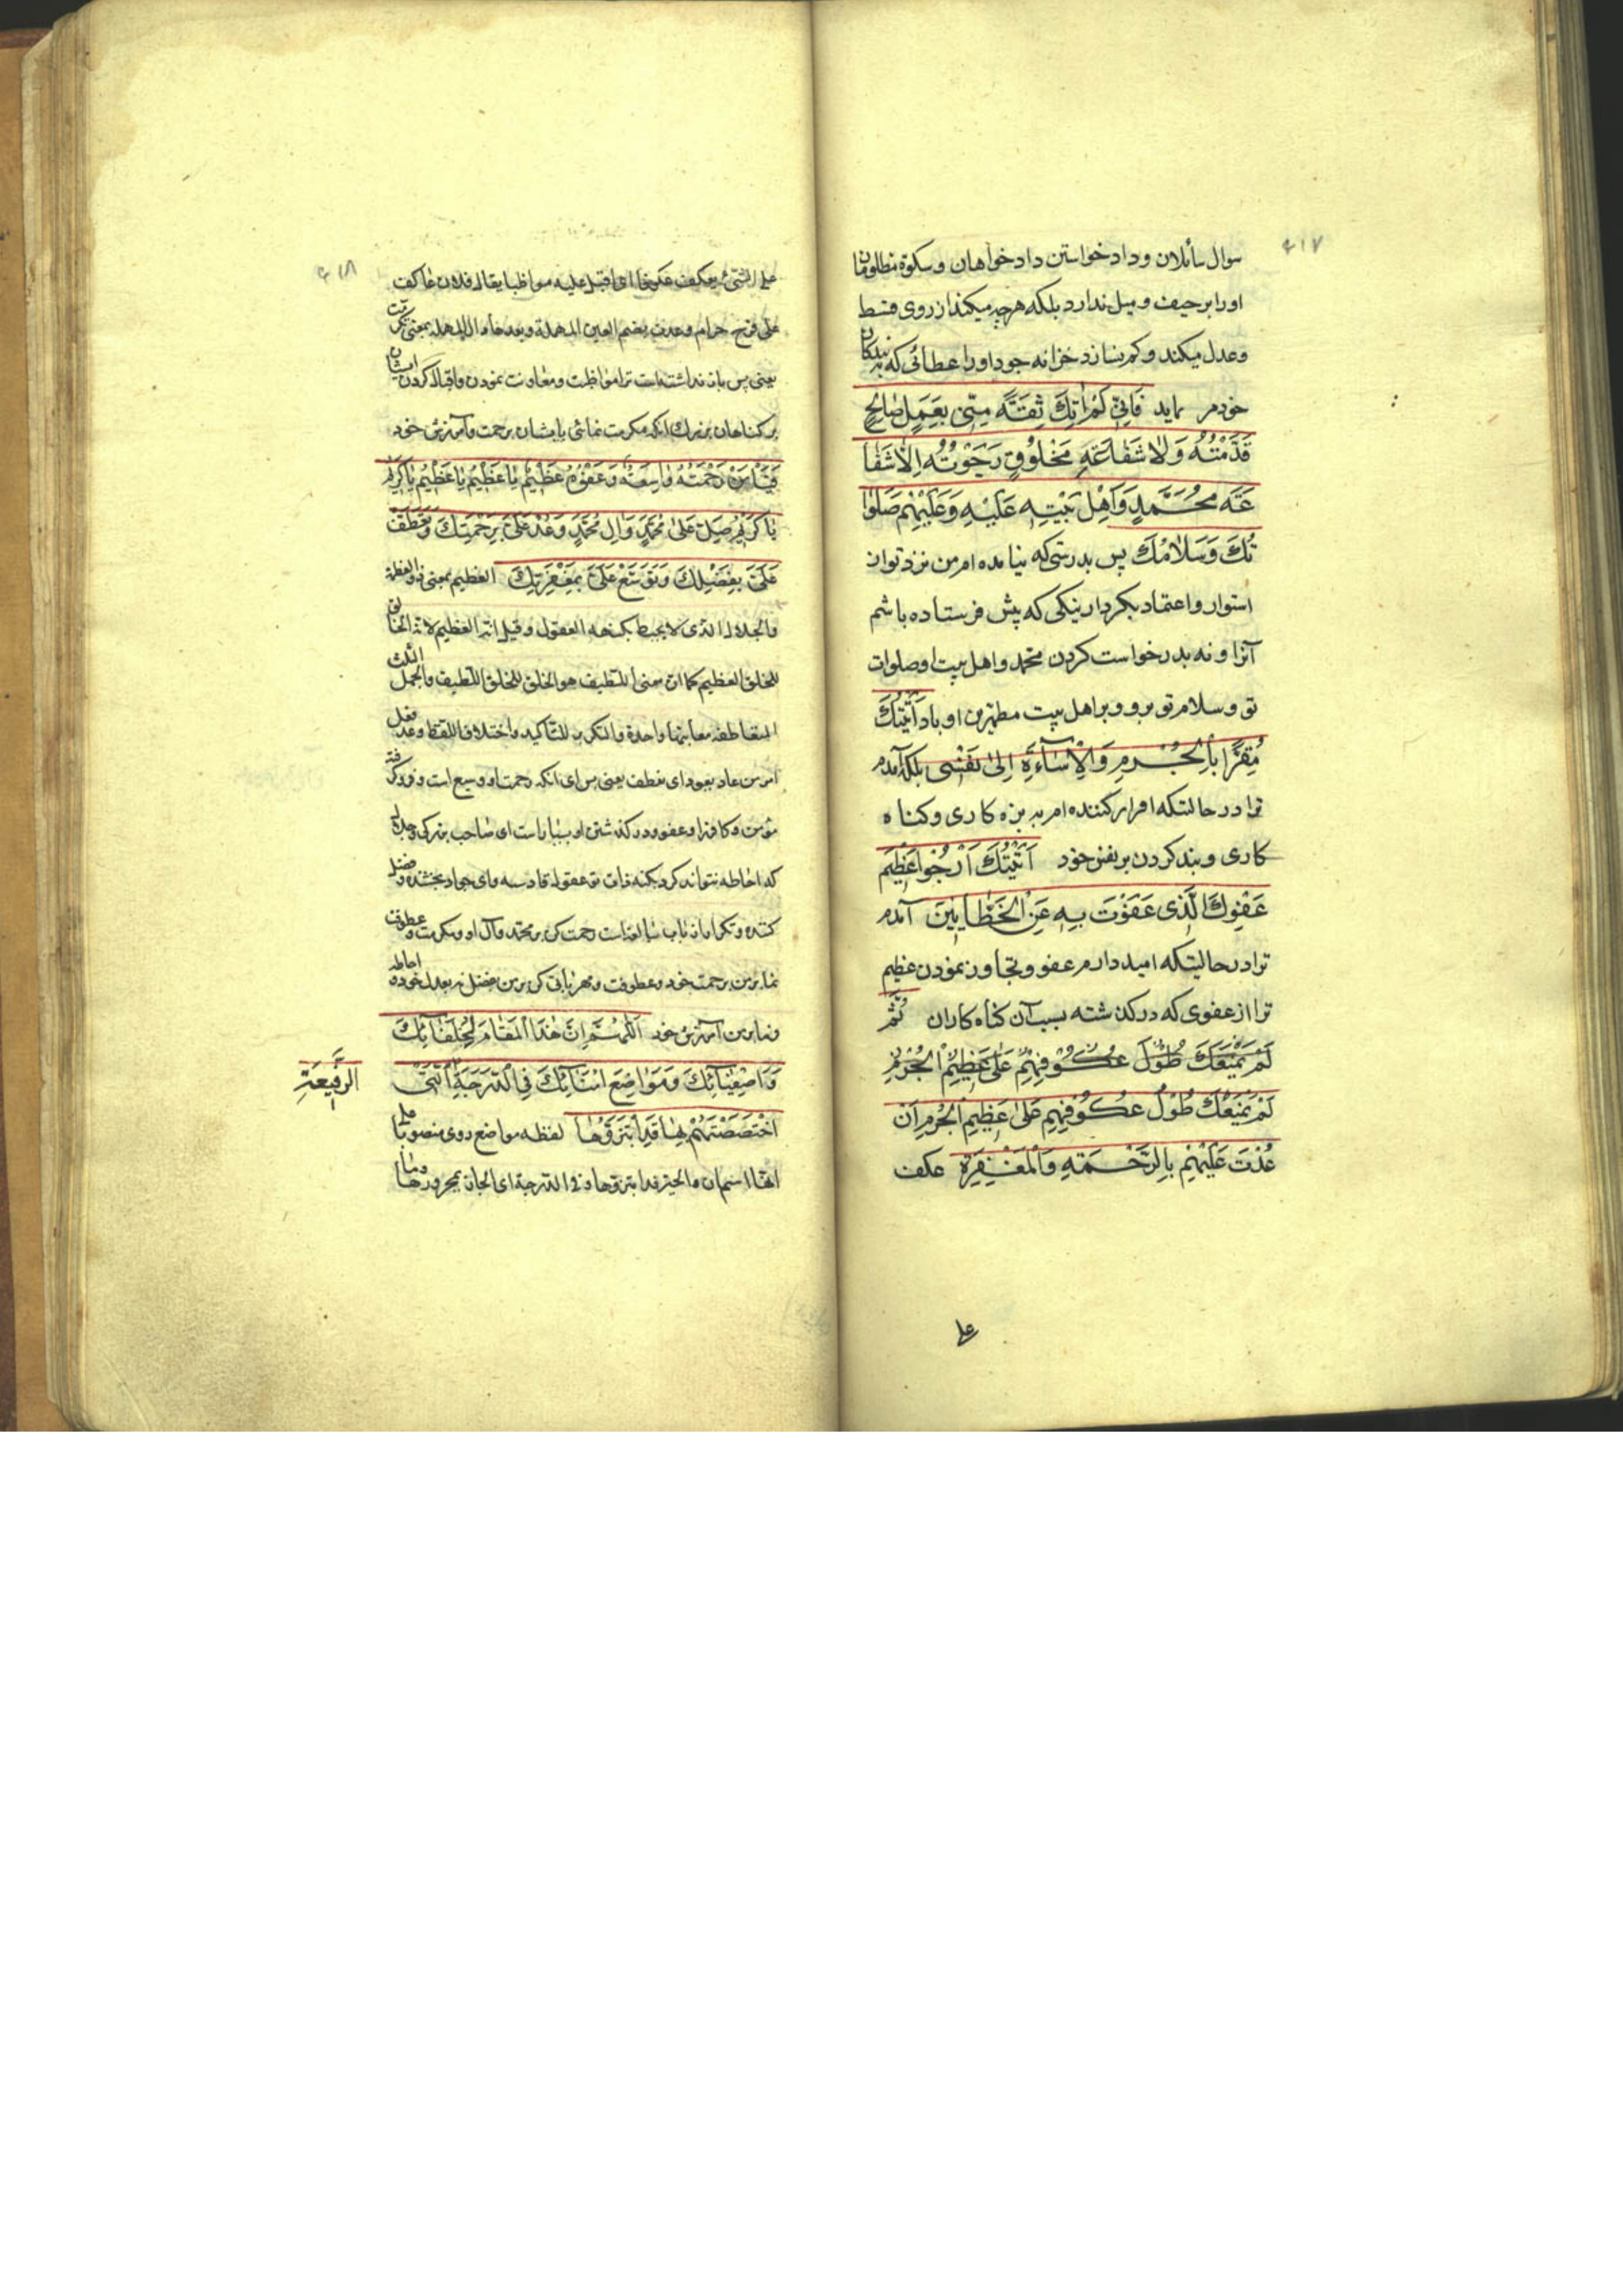 ۴۱۷
سوال سائلان و داد خواستن داد خواهان و شکوهٔ مظلومان
او را بر حیف و میل ندارد بلکه هرچه میکند از روی قسط
و عدل میکند و کم نسازد خزانه جود او را عطائی که به بندکان
خود م نماید فَاِنّی لَمْ اٰتِكَ ثِقَةً مِنّی بِعَمَلٍ صٰالِحٍ
قَدَّمْتُهُ وَلٰا شَفٰاعَةِ مَخْلُوقٍ رَجَوْتُهُ اِلّٰا شَفٰا
عَةَ مُحَمَّدٍ وَاَهْلِ بَیْتِهِ عَلَیْهِ وَعَلَیْهِمْ صَلَوٰا
تُكَ وَسَلٰامُكَ پس بدرستی که نیامده ام من نزد تو از
استوار و اعتماد بکردار نیکی که پیش فرستاده باشم
آنرا و نه بدرخواست کردن محمد و اهل بیت او صلوات
تو و سلام تو برو و بر اهل بیت مطهرین او باد اَتَیْتُكَ
مُقِرًّا بِالْجُرْمِ وَالْاِسٰآءَةِ اِلیٰ نَفْسی بلکه آمدم
ترا در حالتیکه اقرار کننده ام به بزه کاری و کناه
کاری و بند کردن بر نفس خود اَتَیْتُكَ اَرْجُوا عَظیمَ
عَفْوِكَ الَّذی عَفَوْتَ بِهِ عَنِ الْخَطّٰائینَ آمدم
ترا در حالتیکه امید دارم عفو و تجاوز نمودن عظیم
ترا از عفوی که در کذشته بسبب آن کناه کاران ثُمَّ
لَمْ یَمْنَعْكَ طُوْلُ عُكُوْفِهِمْ عَلیٰ عَظیمِ الْجُرْمِ
لَمْ یَمْنَعْكَ طُوْلُ عُكُوْفِهِمْ عَلیٰ عَظیمِ الْجُرْمِ اَنْ
عُدْتَ عَلَیْهِمْ بِالرَّحْمَةِ وَالْمَغْفِرَةِ عکف
علی
۴۱۸
علی الشئ یعکف عکوفا ای اقبل علیه مواظبا یقال فلان عاکف
علی فرج حرام و عدت بضم العین المهملة و بعدها الدال المهملة بمعنی تکرمت
یعنی پس باز نداشته است ترا مواظبت و معاونت نمودن و اقبال کردن ایشان
بر کناهان بزرك آنکه مکرمت نمائی بایشان برحمت و آمرزش خود
فَیٰا مَنْ رَحْمَتُهُ وٰاسِعَةٌ وَعَفْوُهُ عَظیمٌ یٰا عَظیمُ یٰا عَظیمُ یٰا كَریمُ
یٰا كَریمُ صَلِّ عَلیٰ مُحَمَّدٍ وَاٰلِ مُحَمَّدٍ وَعُدْ عَلَیَّ بِرَحْمَتِكَ وَتَعَطَّفْ
عَلَیَّ بِفَضْلِكَ وَتَوَسَّعْ عَلَیَّ بِمَغْفِرَتِكَ العظیم بمعنی ذو العظمة
والجلال الذی لا یحیط بکنهه العقول و قیل انه العظیم لانه الخالق
للخلق العظیم کما ان معنی اللطیف هو الخالق للخلق اللطیف والجمل الثلث
المتعاطفة معانیها واحدة والتکریر للتاکید و اختلاف اللفظ و عد فعل
امر من عاد یعود ای تعطف یعنی پس ای آنکه رحمت او وسیع است و فرو کرفته
مؤمن و کافر را و عفو و در کذشتن او بسیار است ای صاحب بزرکی و جلالی
که احاطه نتواند کرد بکنه ذات تو عقول قادسه و ای جواد بخشنده و فضل
کننده و تکرار از باب مبالغه است رحمت کن بر محمد و آل او و مکرمت و عطوفت
نما بر من برحمت خود و عطوفت و مهربانی کن بر من بفضل نه بعدل خود و احاطه
نما بر من آمرزش خود اَللّٰهُمَّ اِنَّ هٰذَا الْمَقٰامَ لِخُلَفٰائِكَ
وَاَصْفِیٰائِكَ وَمَوٰاضِعَ اُمَنٰائِكَ فِی الدَّرَجَةِ الَّتی
الرَّفیعَةِ
اخْتَصَصْتَهُمْ بِهٰا قَدِ ابْتَزُّوهٰا لفظه مواضع روی منصوبا علی
انها اسم ان والخبر قد ابتزوها و فی الدرجة ای الحال و مجرورها